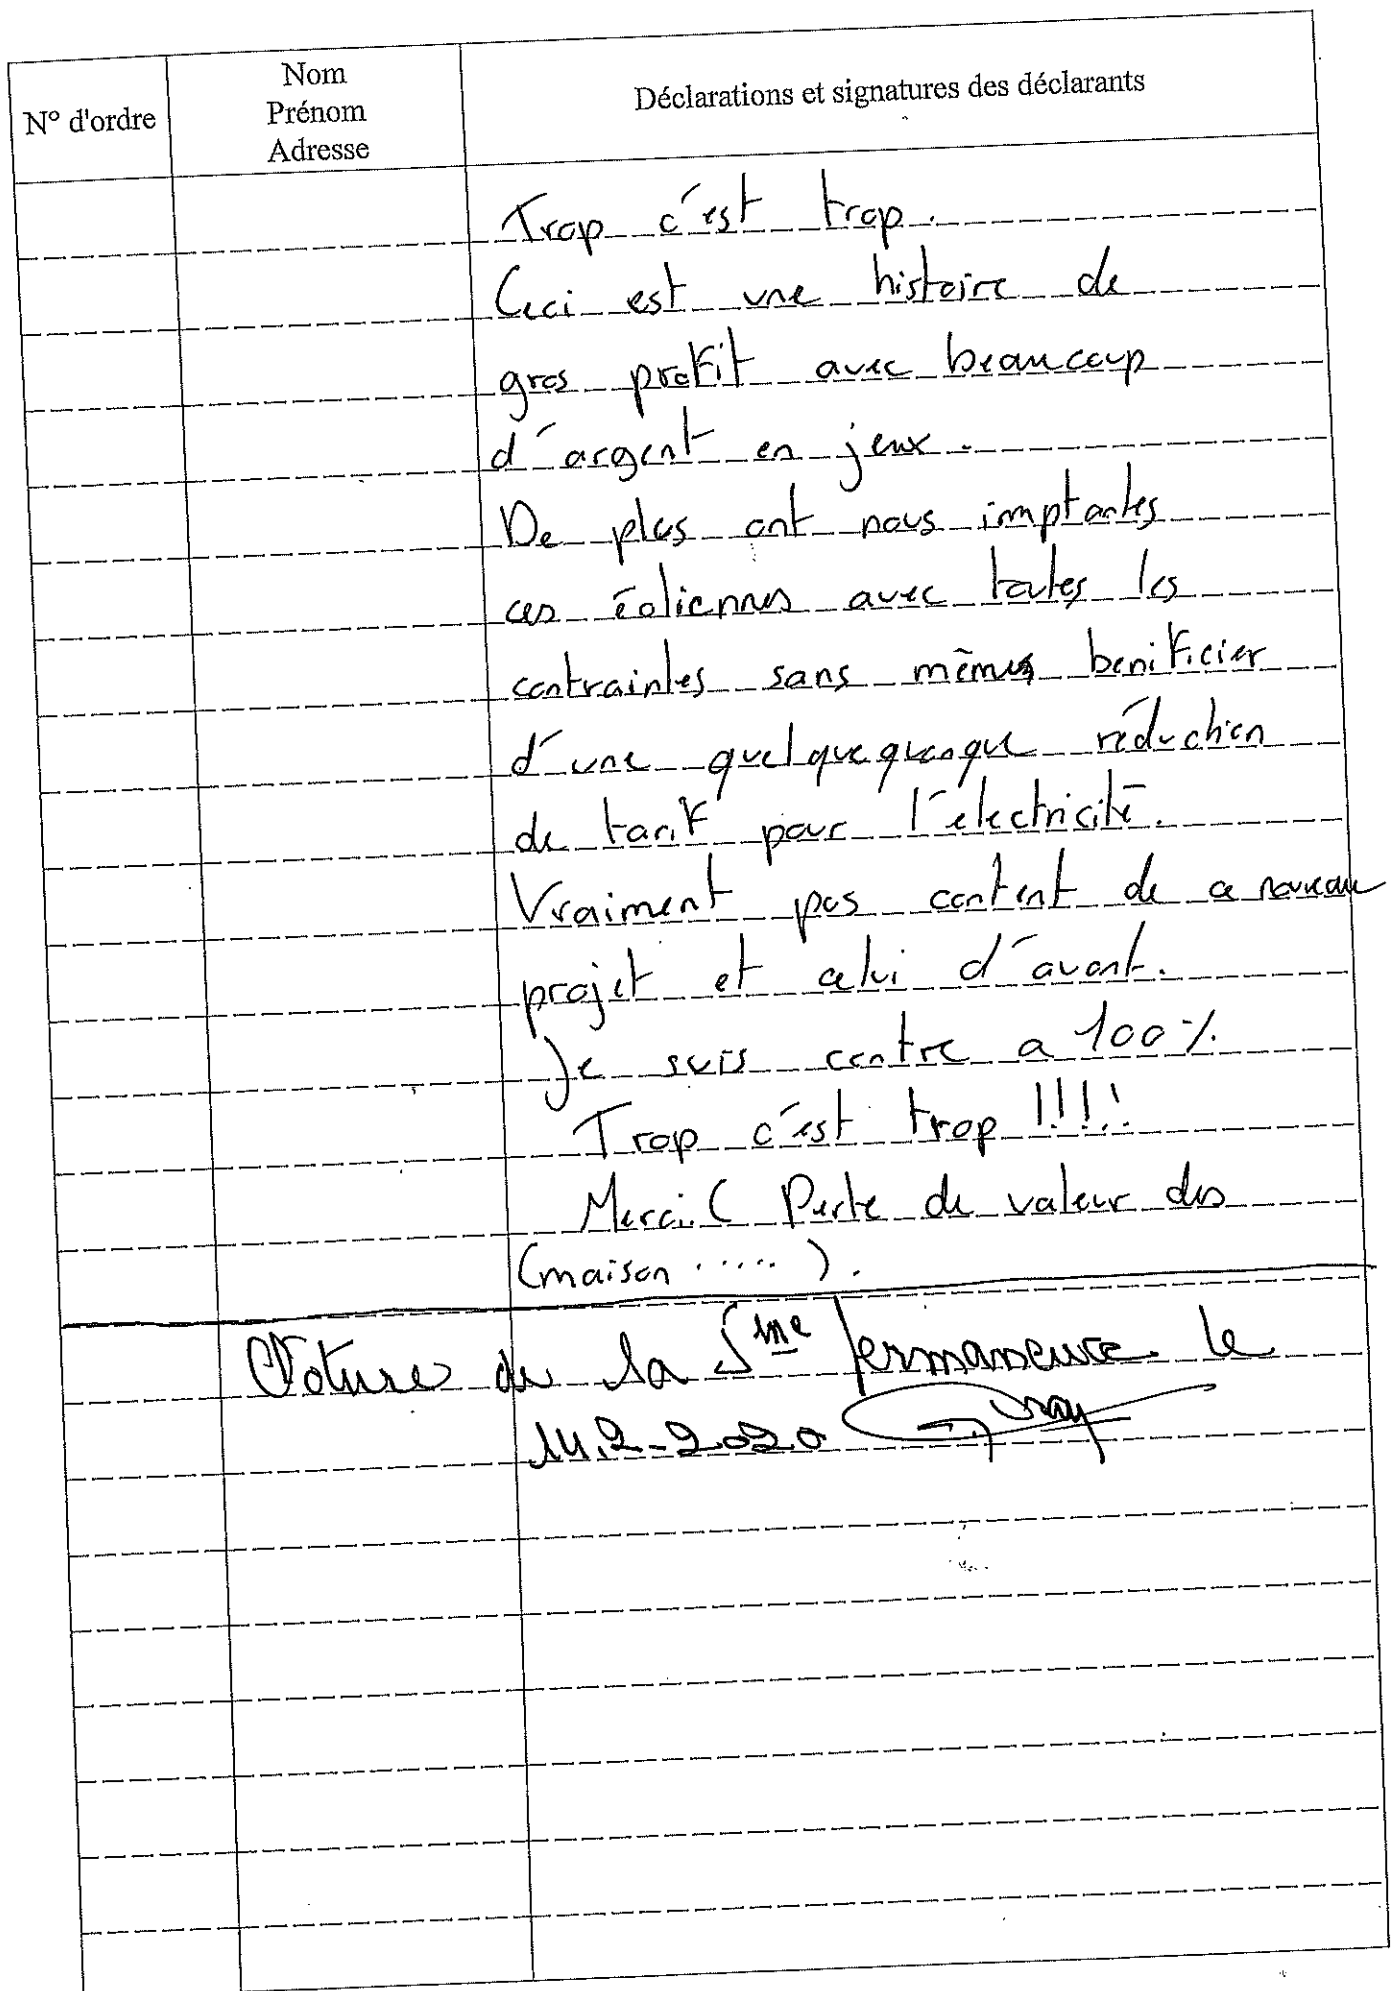 N° d'ordre
Nom
Prénom
Adresse
Déclarations et signatures des déclarants
Trop c'est trop.
Ceci est une histoire de
gros profit avec beaucoup
d'argent en jeux.
De plus ont nous implantes
ces éoliennes avec toutes les
contraintes sans mêmes benificier
d'une quelquequonque réduction
de tarif pour l'électricité.
Vraiment pas content de ce nouveau
projet et celui d'avant.
Je suis contre a 100%
Trop c'est trop !!!!
Merci. ( Perte de valeur des
(maison ..... ).
Cloture de la 5me permanence le
14.2-2020